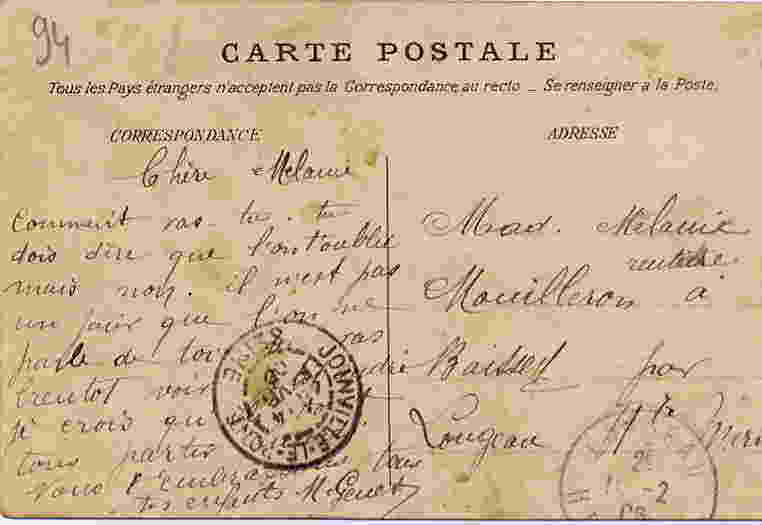 94
CARTE POSTALE
Tous les Pays étrangers n'acceptent pas la Correspondance au recto _ Se renseigner a la Poste.
CORRESPONDANCE
Chère Melanie
Comment vas tu. tu
dois dire que l'ont oublie
mais non. il n'est pas
un jour que l'on ne
parle de toi pas
bientot voir
je crois qu
tous partir
Vous embrasse tous
tes enfants M. Genet
ADRESSE
Mad. Melanie
rentière
Mouilleron à
Baissey par
Longeau Hte Mar
JOINVILLE-LE-PONT
SEINE